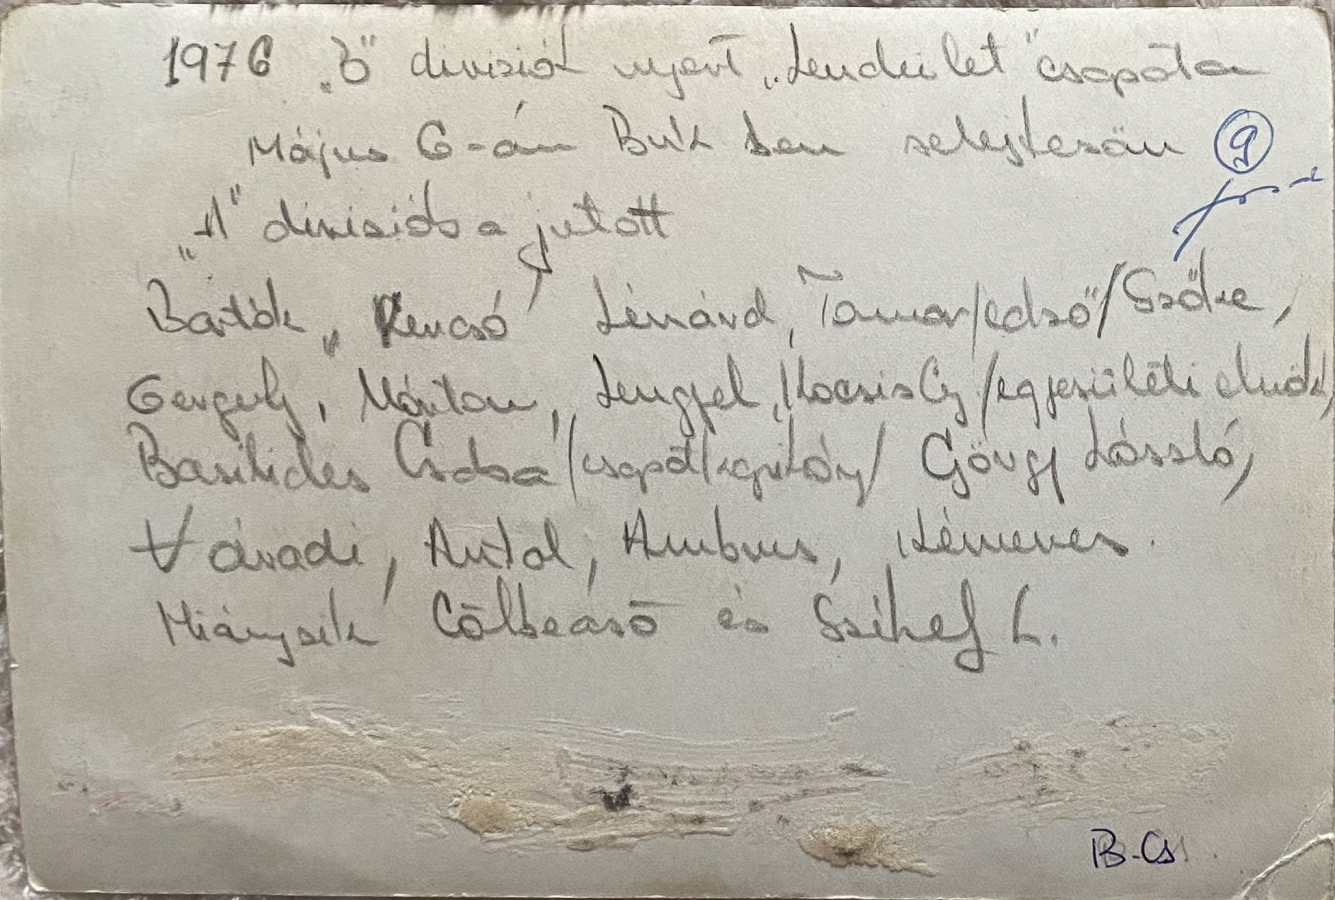 1976 „B" divisiót nyert „Lendület" csapata
Május 6-án Bük ben selejtezőn 9
„A" divisióba jutott
Bartók, Rencsó Lénárd, Tamar/edző/ Szőke,
Gergely, Márton, Lengyel, Kocsis Gy /egyesületi elnök/,
Basilides Csaba /csapatkapitány/ György László,
Váradi, Antal, Ambrus, Kemenes.
Hiányzik Cölbeásó és Székely L.
B-Cs